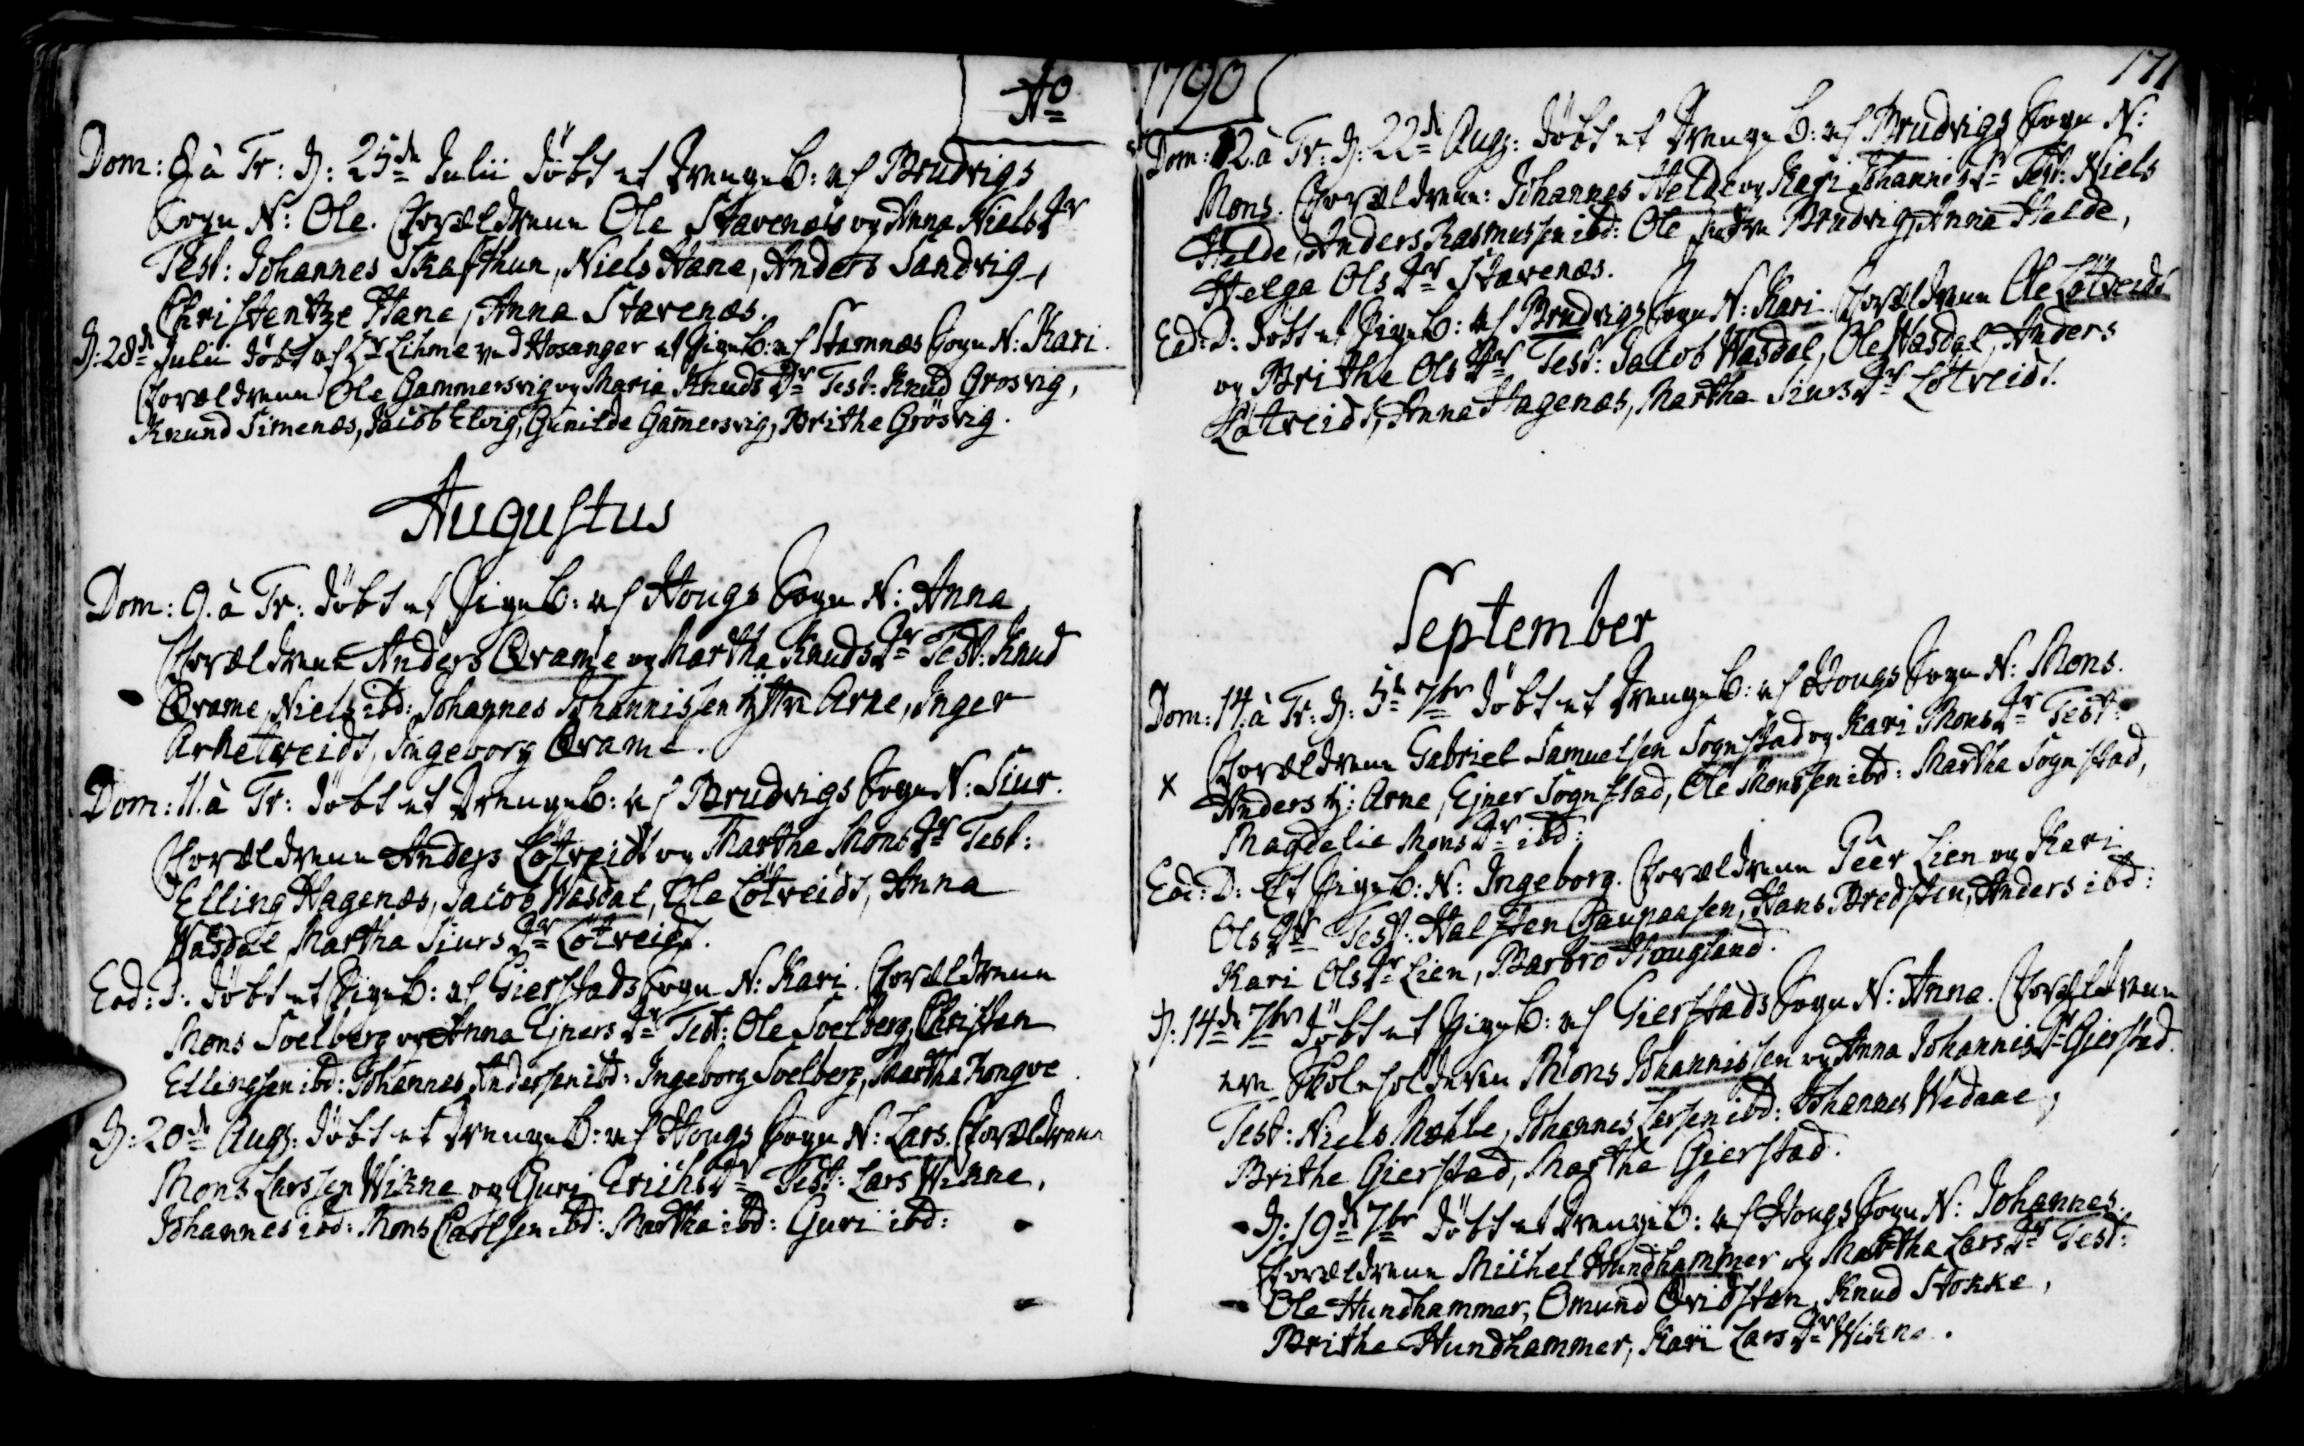 Ao
Dom: 8 à Tr: D: 25de Julii döbt et Drengeb: af Brudvigs
Sogn N: Ole. Forældrene Ole Stavenæs og Anna NielsDr
Test: Johannes Skafthun, Niels Hane, Anders Sandvig,
Christentze Hane, Anna Stavenæs.
D: 28de Julii döbt af Hr Lihme ved Hosanger et Pigeb: af Stamnæs Sogn N: Kari.
Forældrene Ole Gammersvig og Maria KnudsDr Test: Knud Grosvig,
Knund Simenæs, Jacob Elvig, Gunilde Gamersvig, Brithe Grøsvig.
Augustus
Dom: 9. à Tr: döbt et Pigeb: af Hougs Sogn N: Anna
Forældrene Anders Qvame og Martha KnudsDr Test: Knud
Qvame, Niels ibd: Johannes Johannissen yttre Arne, Inger
Arketveidt, Ingeborg Qvame.
Dom: 11. à Tr: döbt et Drengeb: af Brudvigs Sogn N: Siur.
Forældrene Anders Løtveidt og Marthe MonsDr Test:
Elling Hagenæs, Jacob Wasdal, Ole Løtveidt, Anna
Wasdal, Martha SiursDr Løtveidt.
Eod: D: döbt et Pigeb: af Gierstads Sogn N: Kari. Forældrene
Mons Soelberg og Anna EjnersDr Test: Ole Soelberg, Christen
Ellingsen ibd: Johannes Andersen ibd: Ingeborg Soelberg, Martha Rongve
D: 20de Augs: döbt et Drengeb: af Hougs Sogn N: Lars. Forældrene
Mons Larssen Wikne og Guri ErichsDr Test: Lars Wikne,
Johannes ibd: Mons Carlsen ibd: Martha ibd: Guri ibd:
1790
171
Dom: 12. à Tr: D: 22de Augs: döbt et Drengeb: af Brudvigs Sogn N:
Mons. Forældrene: Johannes Helde og Kari JohannisDr Test: Niels
Helde, Anders Rasmussen ibd: Ole Brudvig, Anna Helde,
Helga OlsDr Stavenæs.
Eod: D: döbt et Pigeb: af Brudvigs Sogn N: Kari. Forældrene Ole Løtveidt
og Brithe OlsDr Test: Jacob Wasdal, Ole Wasdal, Anders
Løtveidt, Anna Hagenæs, Martha SiursDr Løtveidt.
September
Dom: 14. à Tr: D: 5te 7br döbt et Drengeb: af Hougs Sogn N: Mons.
Forældrene Gabriel Samuelsen Sognstad og Kari MonsDr Test:
x Anders y: Arne, Ejner Sognstad, Ole Monssen ibd: Martha Sognstad,
Magdelie MonsDr ibd:
Eod: D: Et Pigeb: N: Ingeborg. Forældrene Peer Lien og Kari
OlsDr Test: Halsten Gaupaasen, Hans Bredsten, Anders ibd:
Kari OlsDr Lien, Barbro Hougland.
D: 14de 7br döbt et Pigeb: af Gierstads Sogn N: Anna. Forældrene
ere Skoleholderen Mons Johannissen og Anna JohannisDr Gierstad.
Test: Niels Mæhle, Johannes Larsen ibd: Johannes Wedaae,
Brithe Gierstad, Martha Gierstad.
D: 19de 7br döbt et Drengeb: af Hougs Sogn N: Johannes.
Forældrene Michel Hundhammer og Martha LarsDr Test:
Ole Hundhammer, Omund Qvidsten, Knud Stokke,
Brithe Hundhammer, Kari LarsDr Wikne.